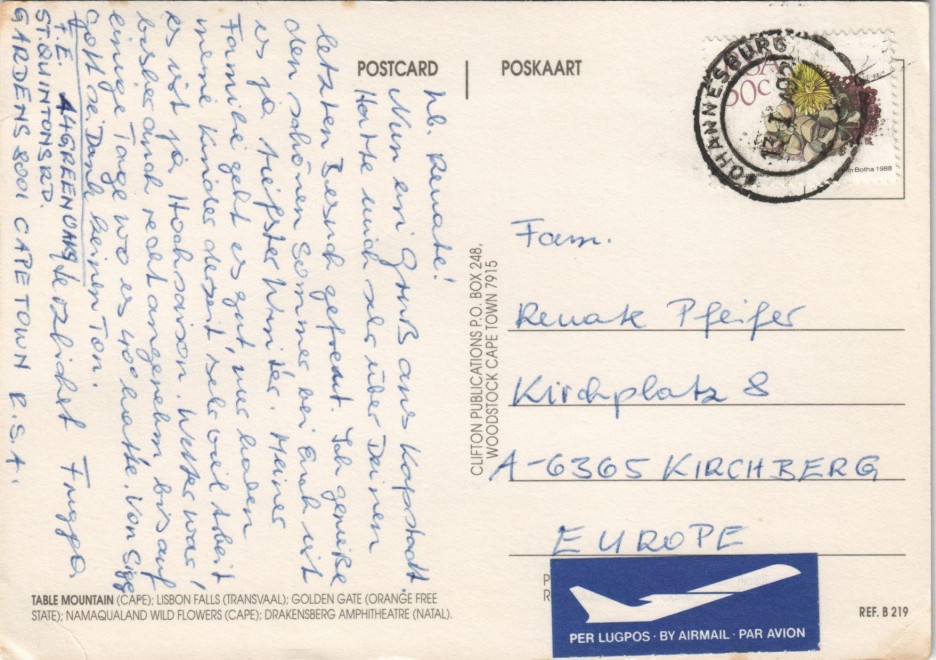 POSTCARD
POSKAART
Lb. Renate!
Nun ein Gruß aus Kapstadt.
Hatte mich sehr über Deinen
letzten Besuch gefreut. Ich genieße
den schönen Sommer, bei Euch ist
es ja tiefster Winter. Meiner
Familie geht es gut, nur haben
meine Kinder derzeit sehr viel Arbeit
es ist ja Hochsaison. Wetter war
bisher auch recht angenehm bis auf
einige Tage wo es 40° hatte. Von
Gott sei Dank keinen Ton.
herzlichst
F.E.
44 GREEN OAKS
ST. QUINTONS RD.
GARDENS 8001 CAPE TOWN R.S.A.
CLIFTON PUBLICATIONS P.O. BOX 248,
WOODSTOCK CAPE TOWN 7915
JOHANNESBURG
RSA
50c
Botha 1988
Fam.
Renate Pfeifer
Kirchplatz 8
A-6365 KIRCHBERG
EUROPE
PER LUGPOS · BY AIRMAIL · PAR AVION
TABLE MOUNTAIN (CAPE); LISBON FALLS (TRANSVAAL); GOLDEN GATE (ORANGE FREE
STATE); NAMAQUALAND WILD FLOWERS (CAPE); DRAKENSBERG AMPHITHEATRE (NATAL).
REF. B 219